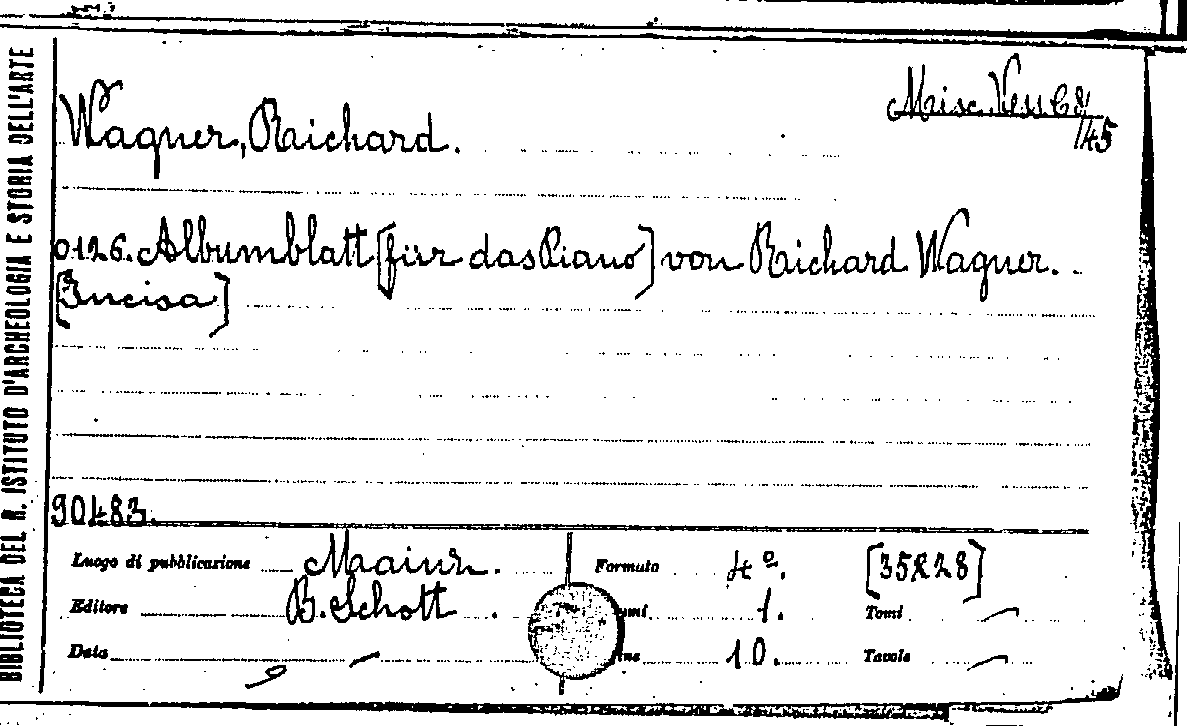 BIBLIOTECA DEL R. ISTITUTO D'ARCHEOLOGIA E STORIA DELL'ARTE
Misc. Vess. C 8/145
Wagner, Richard.
0126. Albumblatt [für das Piano] von Richard Wagner.
[Incisa]
90483.
Luogo di pubblicazione Mainz. Formato 4º. [35x28]
Editore B. Schott. 1. Tomi —
Data — 10. Tavole —